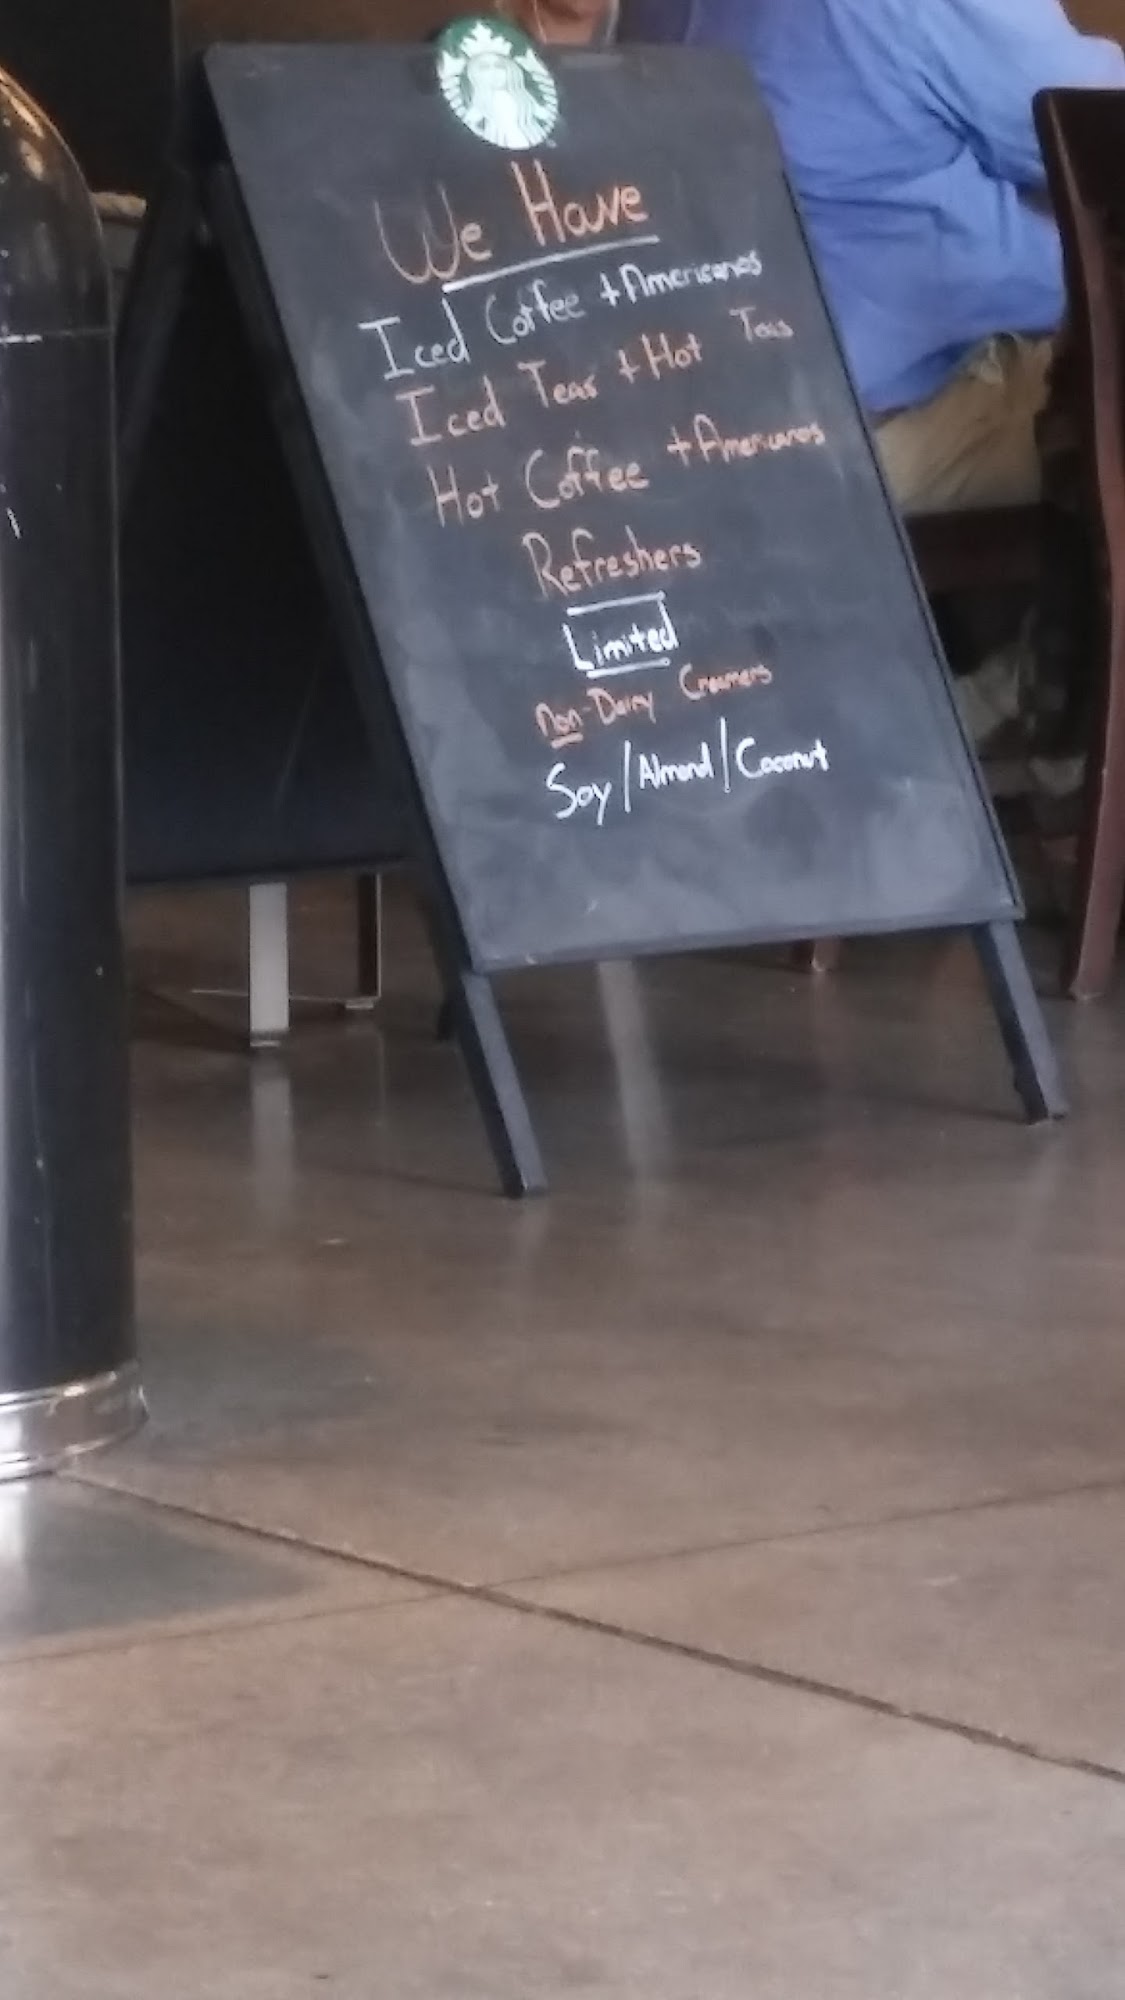 We Have
Iced Coffee + Americanos
Iced Teas + Hot Teas
Hot Coffee + Americanos
Refreshers
Limited
Non-Dairy Creamers
Soy / Almond / Coconut